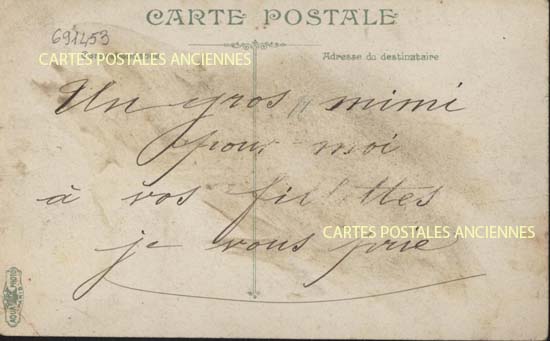 CARTE POSTALE
691453
CARTES POSTALES ANCIENNES
Adresse du destinataire
Un gros mimi
pour moi
à vos fillettes
CARTES POSTALES ANCIENNES
je vous prie